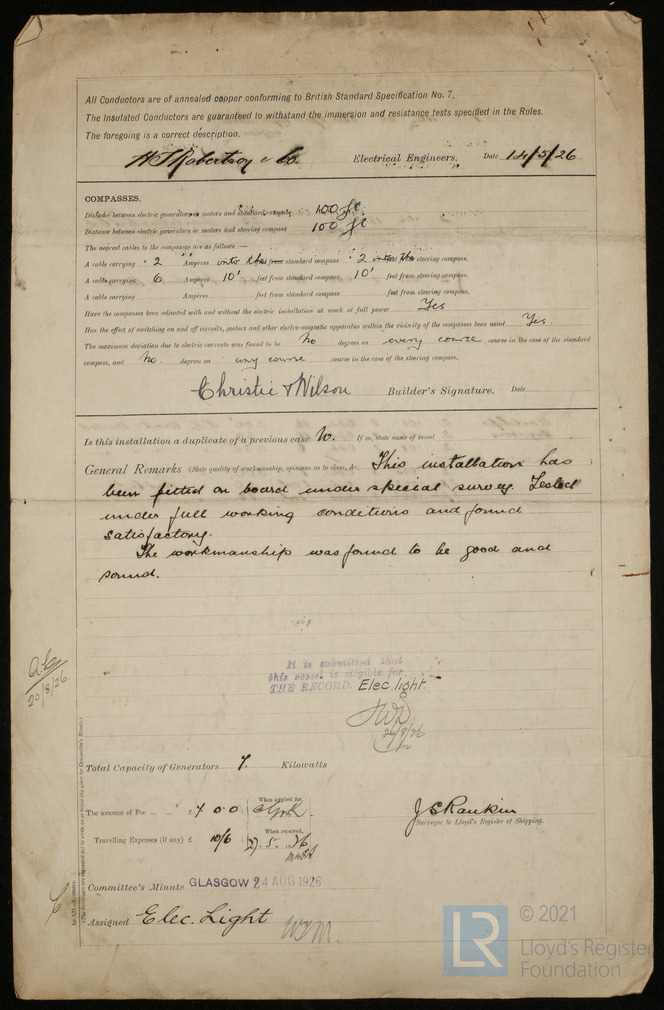 All Conductors are of annealed copper conforming to British Standard Specification No. 7.
The Insulated Conductors are guaranteed to withstand the immersion and resistance tests specified in the Rules.
The foregoing is a correct description.
H J Robertson & Co. Electrical Engineers. Date 14/5/26
COMPASSES.
Distance between electric generators or motors and standard compass 100 ft
Distance between electric generators or motors and steering compass 100 ft
The nearest cables to the compasses are as follows:—
A cable carrying 2 Amperes into the feet from standard compass 2 into the feet from steering compass.
A cable carrying 6 Amperes 10' feet from standard compass 10' feet from steering compass.
A cable carrying Amperes feet from standard compass feet from steering compass.
Have the compasses been adjusted with and without the electric installation at work at full power Yes
Has the effect of switching on and off circuits, motors and other electro-magnetic apparatus within the vicinity of the compasses been noted Yes.
The maximum deviation due to electric currents was found to be No degrees on every course course in the case of the standard
compass, and No. degrees on any course course in the case of the steering compass.
Christie & Wilson Builder's Signature. Date
Is this installation a duplicate of a previous case No. If so, state name of vessel
General Remarks (State quality of workmanship, opinions as to class, &c. This installation has
been fitted on board under special survey. Tested
under full working conditions and found
satisfactory.
The workmanship was found to be good and
sound.
It is submitted that
this vessel is eligible for
THE RECORD. Elec light.
20/8/26
Total Capacity of Generators 7. Kilowatts
The amount of Fee ... ... £ 7 0 0 When applied for,
J S Rankin
Surveyor to Lloyd's Register of Shipping.
Travelling Expenses (if any) £ 10/6 When received,
27.5.1926
Committee's Minute GLASGOW 24 AUG 1926
Assigned Elec. Light
© 2021
Lloyd's Register
Foundation
LR